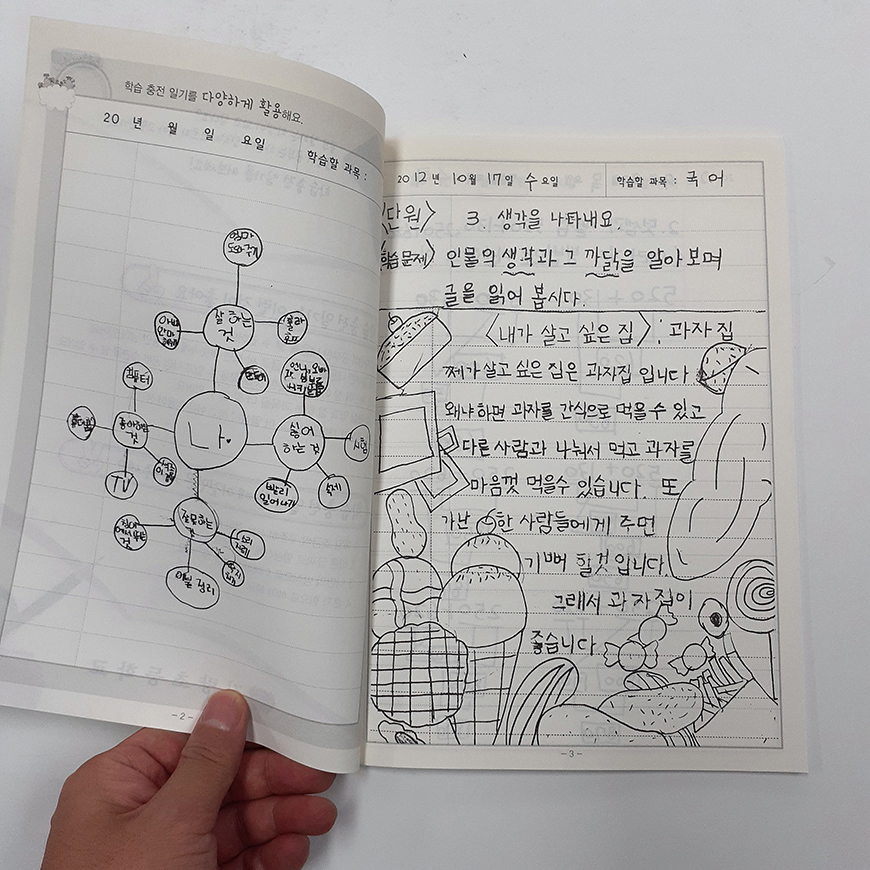 학습 충전 일기를 다양하게 활용해요.
20 년 월 일 요일 학습할 과목 :
엄마 도와주기
잘하는 것
아빠 안마
훌라후프
컴퓨터
좋아하는 것
TV
나.
싫어하는 것
시험
숙제
빨리 일어나기
잘못하는 것
이불 정리
-2-
2012년 10월 17일 수요일 학습할 과목 : 국어
단원〉 3. 생각을 나타내요.
학습문제〉 인물의 생각과 그 까닭을 알아보며
글을 읽어 봅시다.
〈내가 살고 싶은 집〉: 과자집
쩨가살고 싶은 집은 과자집 입니다
왜냐하면 과자를 간식으로 먹을수 있고
다른 사람과 나눠서 먹고 과자를
마음껏 먹을수 있습니다. 또
가난한 사람들에게 주면
기뻐 할것 입니다.
그래서 과자집이
좋습니다
-3-